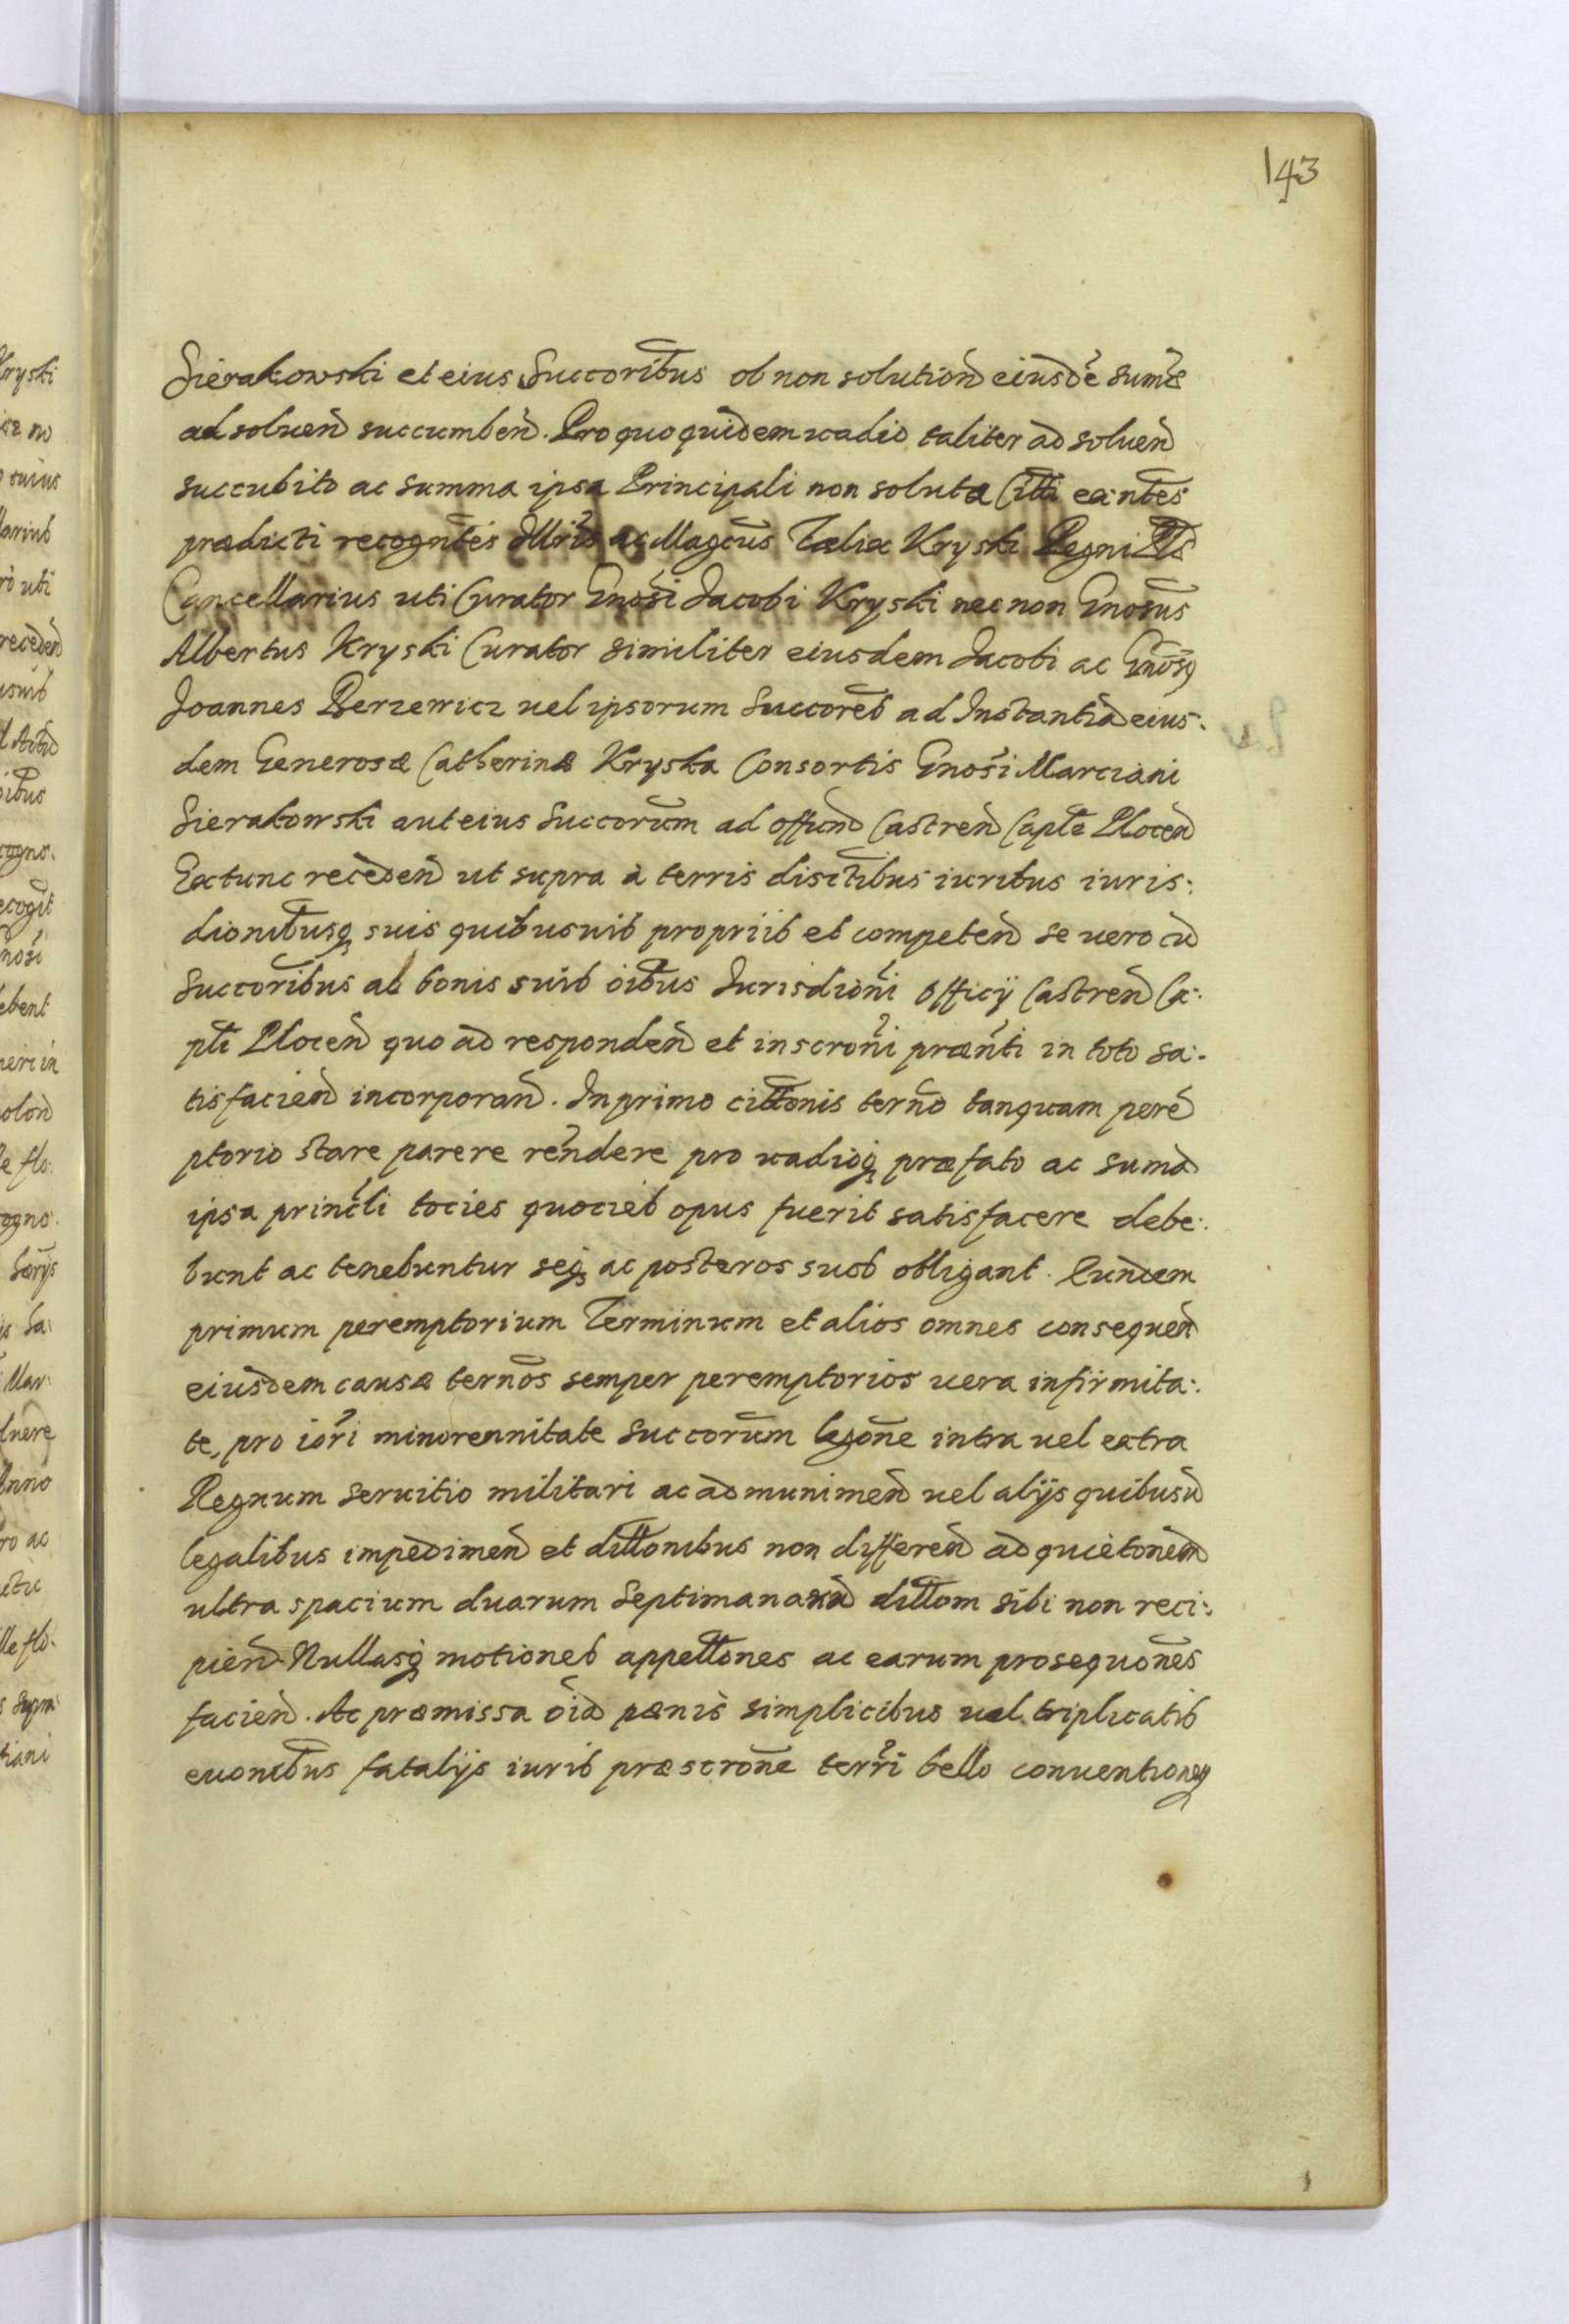 143
Sierakowski et eius Succoribus ob non solution eiusde sumæ
ad soluen succumben. Pro quo quidem uadio taliter ad soluen
succubito ac summa ipsa Principali non soluta Citti exntes
prædicti recogntes Illris ac Magcus Kryski Regni Pls
Cancellarius uti Curator Gnosi Jacobi Kryski nec non Gnosus
Albertus Kryski Curator similiter eiusdem Jacobi ac Gnosq
Joannes Berzewicz uel ipsorum Succores ad Instantia eius:
dem Generosæ Catherinæ Kryska Consortis Gnosi Marciani
Sierakowski aut eius Succorum ad offum Castren Caplē Plocen
Extunc receden ut supra à terris distibus iuribus iuris:
dionibusq suis quibusuis propriis et competen se uero cu
Succoribus ab bonis suis oibus Jurisdioni Officÿ Castren Ca:
plē Plocen quo ad responden et inscroni prænti in toto sa:
tisfacien incorporan. In primo cittonis terno tanquam pere
ptorio stare parere rendere pro uadioq præfato ac suma
ipsa princli tocies quocies opus fuerit satisfacere debe:
bunt ac tenebuntur seq ac posteros suos obligant. Eundem
primum peremptorium Terminum et alios omnes consequen
eiusdem causæ ternos semper peremptorios uera infirmita:
te, pro iori minorennitate Succorum legone intra uel extra
Regnum seruitio militari ac ad munimen uel alÿs quibusu
legalibus impedimen et dittonibus non differen ad quietonem
ultra spacium duarum Septimanaru dittom sibi non reci:
pien Nullasq motiones appettones ac earum prosequones
facien. Ac præmissa oia pænis simplicibus uel triplicatis
euonibus fatalÿs iuris præscrone terri bello conuentioneq